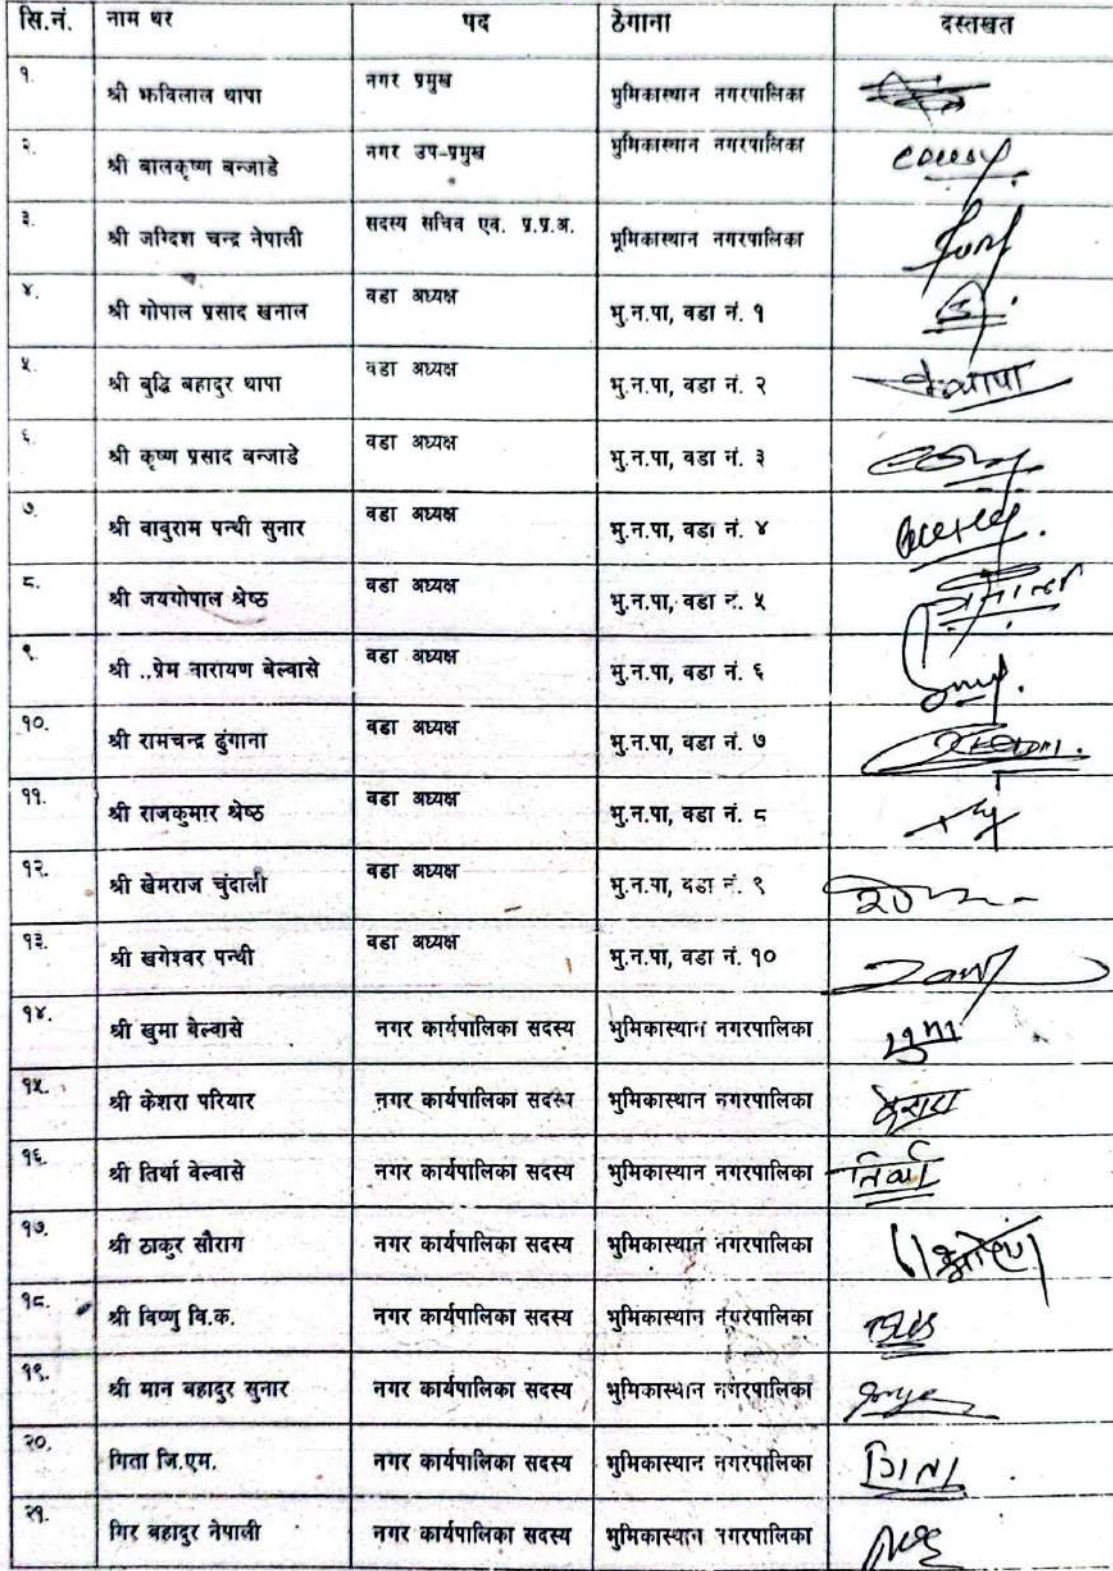 सि.नं. नाम थर पद ठेगाना दस्तखत
१. श्री झविलाल थापा नगर प्रमुख भुमिकास्थान नगरपालिका
२. श्री बालकृष्ण बन्जाडे नगर उप-प्रमुख भुमिकास्थान नगरपालिका
३. श्री जग्दिश चन्द्र नेपाली सदस्य सचिव एव. प्र.प्र.अ. भूमिकास्थान नगरपालिका
४. श्री गोपाल प्रसाद खनाल वडा अध्यक्ष भु.न.पा, वडा नं. १
५. श्री बुद्धि बहादुर थापा वडा अध्यक्ष भु.न.पा, वडा नं. २ थापा
६. श्री कृष्ण प्रसाद बन्जाडे वडा अध्यक्ष भु.न.पा, वडा नं. ३
७. श्री बाबुराम पन्थी सुनार वडा अध्यक्ष भु.न.पा, वडा नं. ४
८. श्री जयगोपाल श्रेष्ठ वडा अध्यक्ष भु.न.पा, वडा नं. ५
९. श्री ..प्रेम नारायण बेल्वासे वडा अध्यक्ष भु.न.पा, वडा नं. ६
१०. श्री रामचन्द्र ढुंगाना वडा अध्यक्ष भु.न.पा, वडा नं. ७
११. श्री राजकुमार श्रेष्ठ वडा अध्यक्ष भु.न.पा, वडा नं. ८
१२. श्री खेमराज चुंदाली वडा अध्यक्ष भु.न.पा, वडा नं. ९
१३. श्री खगेश्वर पन्थी वडा अध्यक्ष भु.न.पा, वडा नं. १०
१४. श्री खुमा बेल्वासे नगर कार्यपालिका सदस्य भुमिकास्थान नगरपालिका खुमा
१५. श्री केशरा परियार नगर कार्यपालिका सदस्य भुमिकास्थान नगरपालिका केसरा
१६. श्री तिर्था वेल्वासे नगर कार्यपालिका सदस्य भुमिकास्थान नगरपालिका तिर्था
१७. श्री ठाकुर सौराग नगर कार्यपालिका सदस्य भुमिकास्थान नगरपालिका
१८. श्री विष्णु वि.क. नगर कार्यपालिका सदस्य भुमिकास्थान नगरपालिका
१९. श्री मान बहादुर सुनार नगर कार्यपालिका सदस्य भुमिकास्थान नगरपालिका
२०. गिता जि.एम. नगर कार्यपालिका सदस्य भुमिकास्थान नगरपालिका गिता
२१. गिर बहादुर नेपाली नगर कार्यपालिका सदस्य भुमिकास्थान नगरपालिका